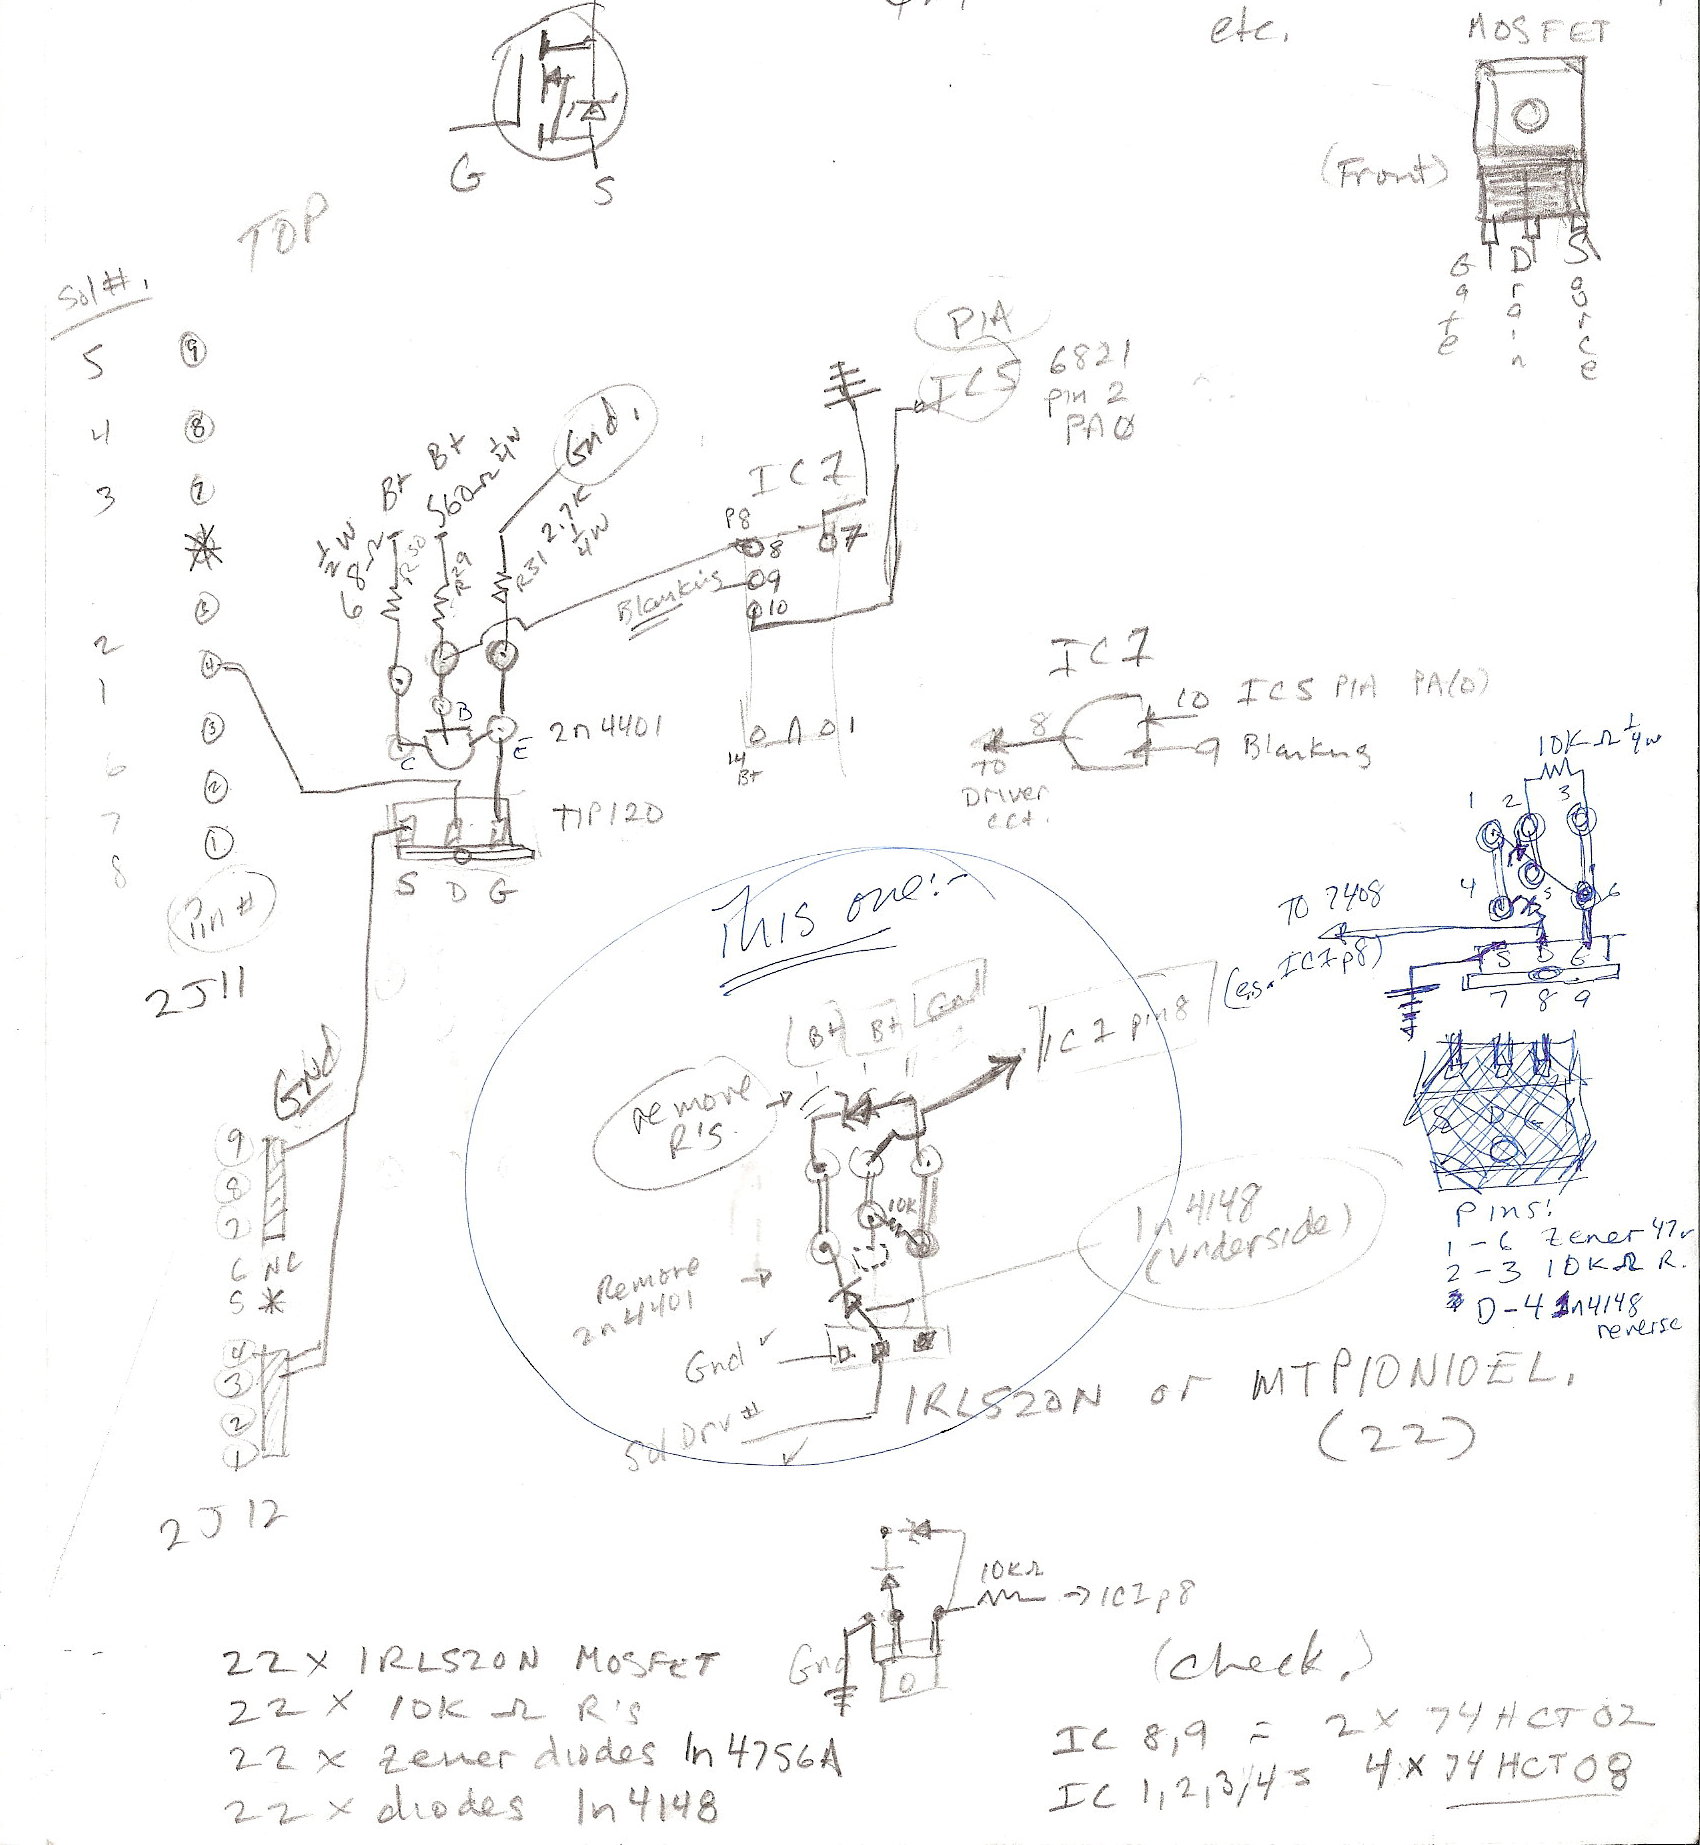 etc.
MOSFET
(Front)
Gate
Drain
Source
G
S
TOP
Sol #.
5 9
4 8
3 7
2 4
1
3
6 2
7 1
8
Pin #
2J11
PIA
IC5
6821
pin 2
PA0
Gnd.
B+
B+
560Ω 1/4W
1/2W
68Ω
R30
R29
R31
2.7K
1/4W
IC7
P8
8
7
9
10
Blanking
14
B+
1
B
C
E
2n4401
TIP120
S D G
IC1
8
10 IC5 PIA PA(0)
9 Blanking
TO
Driver
cct.
10KΩ 1/4w
1 2 3
4 5 6
TO 7408
(e.g. IC1p8)
S D G
7 8 9
S D G
Pins:
1-6 Zener 47v
2-3 10KΩ R.
D-4 1n4148
reverse
This one:-
B+ B+ Gnd
IC1 pin8
remove
R's.
10K
1n4148
(underside)
Remove
2n4401
Gnd
Sol Drv #
IRL520N or MTP10N10EL.
(22)
GND
9
8
7
6 NC
5
4
3
2
1
2J12
10KΩ
IC1p8
Gnd
22 x IRL520N MOSFET
22 x 10K Ω R's
22 x zener diodes 1n4756A
22 x diodes 1n4148
(check.)
IC 8,9 = 2 x 74HCT02
IC 1,2,3,4 = 4 x 74HCT08